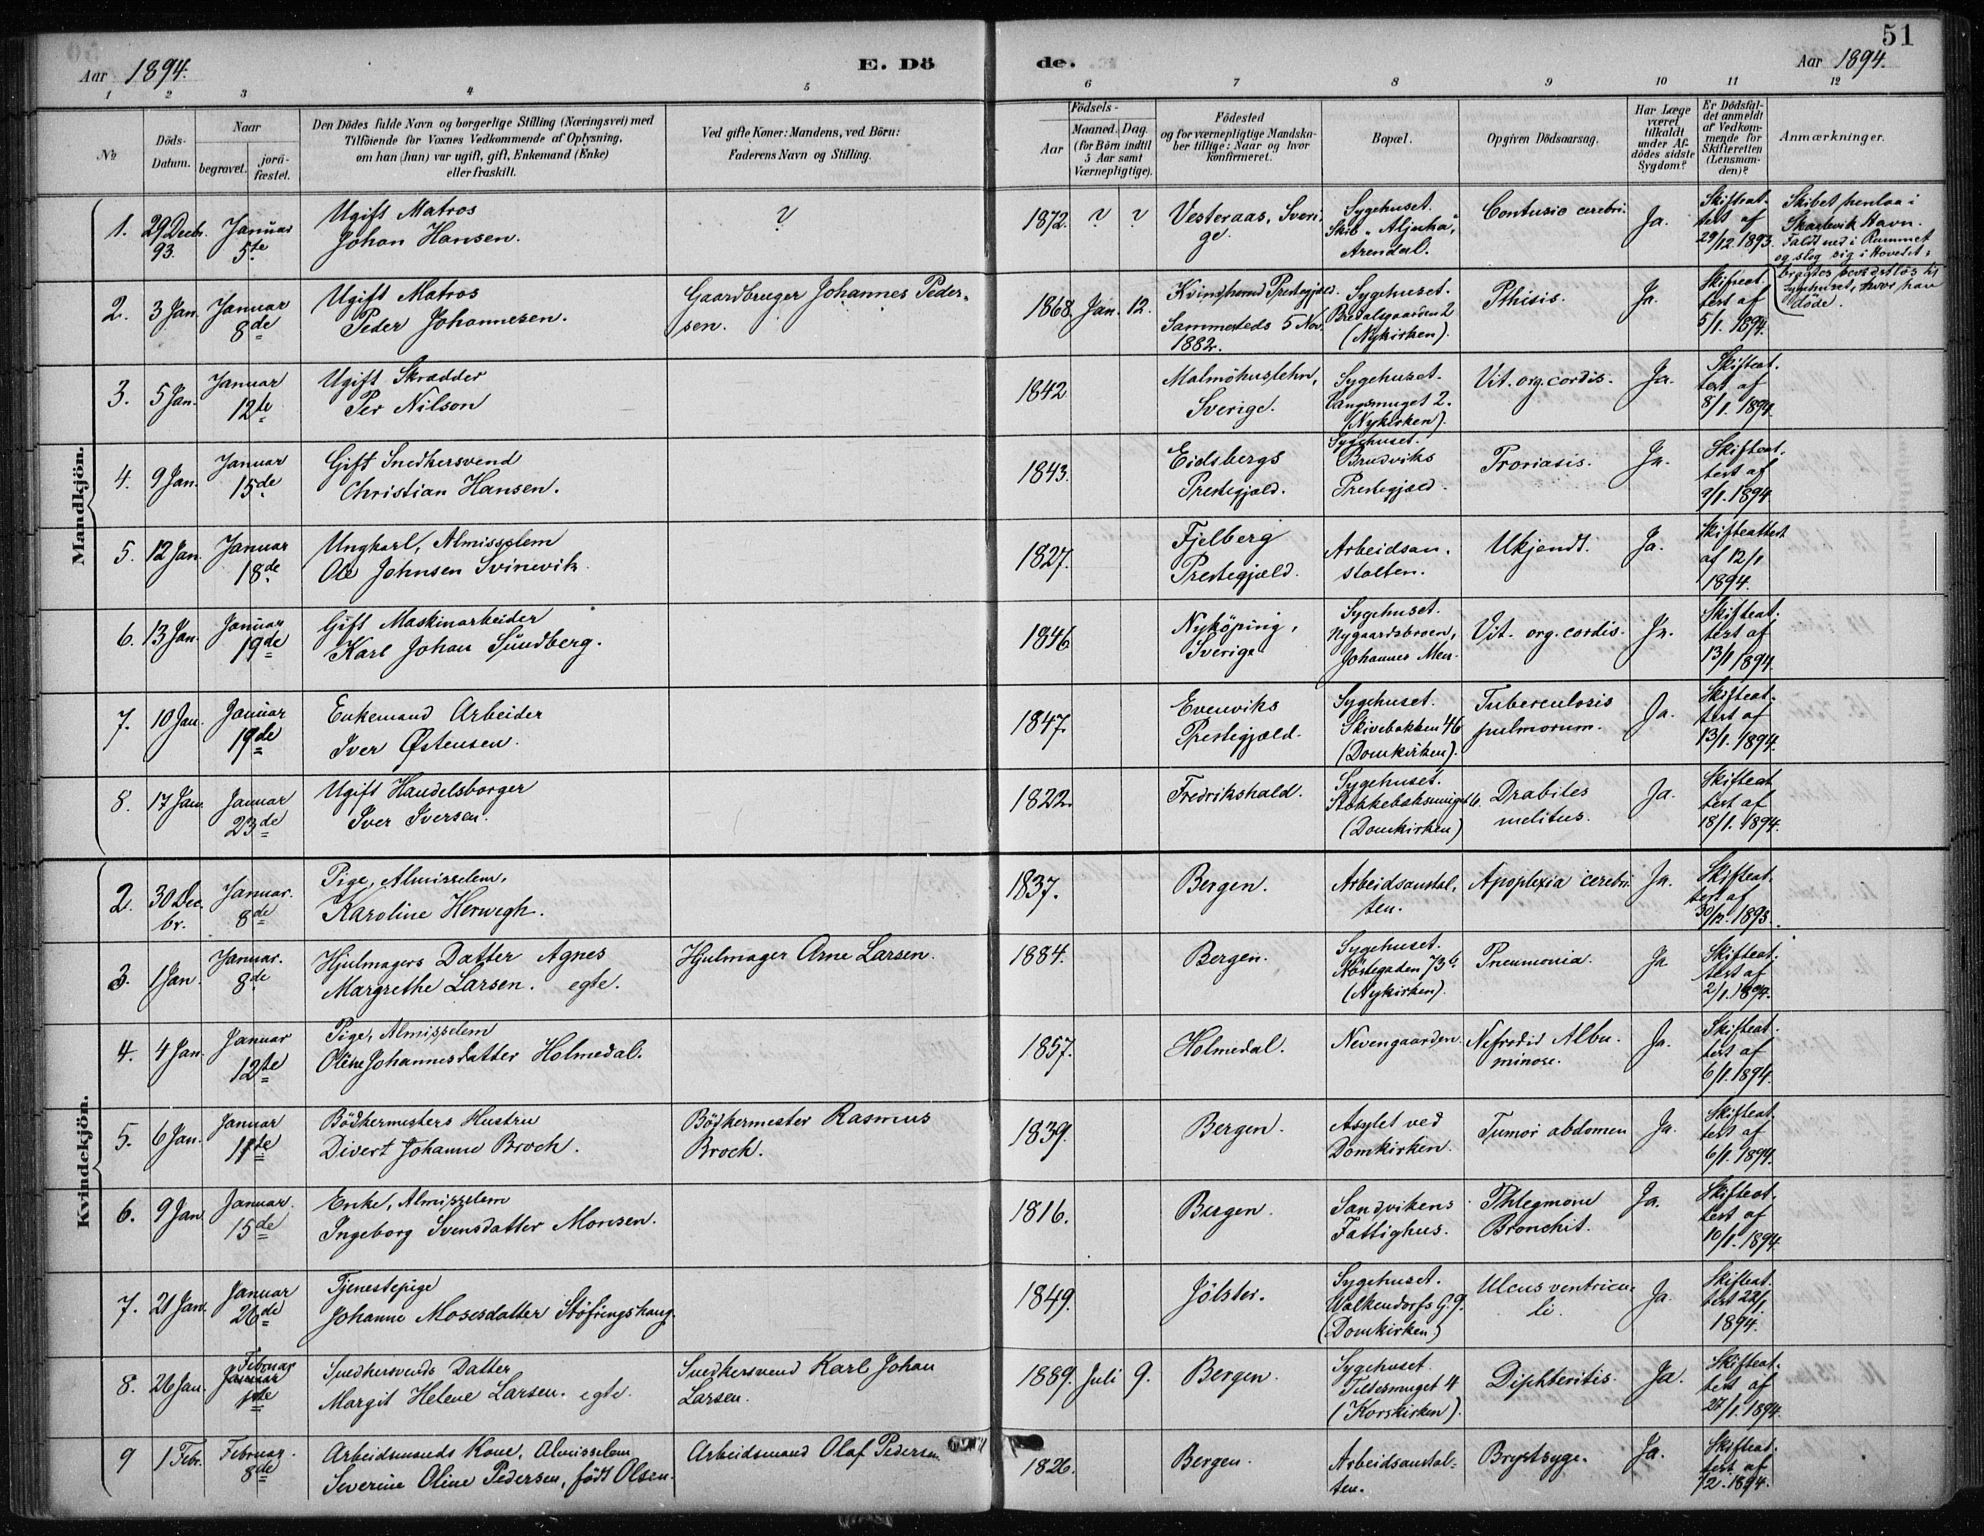 51
Aar 1894.
E. Döde.
Aar 1894.
1 2 3 4 5 6 7 8 9 10 11 12
No
Döds-Datum.
Naar
begravet.
jordfæstet.
Den Dödes fulde Navn og borgerlige Stilling (Næringsvei) med
Tilföiende for Voxnes Vedkommende af Oplysning,
om han (hun) var ugift, gift, Enkemand (Enke)
eller fraskilt.
Ved gifte Koner: Mandens, ved Börn:
Faderens Navn og Stilling.
Födsels-
Aar
Maaned. Dag.
(for Börn indtil
5 Aar samt
Værnepligtige).
Födested
og for værnepligtige Mandska-
ber tillige: Naar og hvor
konfirmeret.
Bopæl.
Opgiven Dödsaarsag.
Har Læge
været
tilkaldt
under Af-
dödes sidste
Sygdom?
Er Dödsfal-
det anmeldt
af Vedkom-
mende for
Skifteretten
(Lensman-
den)?
Anmærkninger.
Mandkjön.
1. 29 Decb. 93. Januar 5te
Ugift Matros
Johan Hansen.
?
1872. ? ?
Vesteraas, Sveri-
ge.
Sygehuset.
Skib "Aljuha",
Arendal.
Contusio cerebri.
Ja.
Skifteat-
test af
29/12. 1893.
Skibet henlaa i
Skarlevik Havn.
Faldt ned i Rummet
og slog sig i Hovedet;
bragtes bevidstløs til
Sygehuset, hvor han
döde.
2. 3 Jan. Januar 8de
Ugift Matros
Peder Johannesen.
Gaardbruger Johannes Peder-
sen.
1868. Jan. 12.
Kvindherred Prestegjæld.
Sammesteds 5 Nov.
1882.
Sygehuset.
Bredalsgaarden 2
(Nykirken).
Pthisis.
Ja.
Skifteat-
test af
5/1. 1894.
3. 5 Jan. Januar 12te
Ugift Skrædder
Per Nilson
1842
Malmöhuslehn,
Sverige.
Sygehuset.
Vangsmuget 2.
(Nykirken).
Vit. org. cordis.
Ja.
Skifteat-
test af
8/1. 1894.
4. 9 Jan. Januar 15de
Gift Snedkersvend
Christian Hansen.
1843.
Eidsbergs
Prestegjæld.
Sygehuset.
Brudviks
Prestegjæld.
Psoriasis.
Ja.
Skifteat-
test af
9/1. 1894.
5. 12 Jan. Januar 18de
Ungkarl, Almisselem
Ole Johnsen Svinevik.
1827.
Fjelberg
Prestegjæld.
Arbeidsan-
stalten.
Ukjendt.
Ja.
Skifteattest
af 12/1
1894.
6. 13 Jan. Januar 19de
Gift Maskinarbeider
Karl Johan Sundberg.
1846
Nyköping,
Sverige
Sygehuset.
Nygaardsbroen,
Johannes Men-
Vit. org. cordis.
Ja.
Skifteat-
test af
13/1 1894.
7. 10 Jan. Januar 19de
Enkemand Arbeider
Iver Østensen.
1847.
Evenviks
Prestegjæld.
Sygehuset.
Skivebakken 46
(Domkirken).
Tuberculosis
pulmorum.
Ja.
Skifteat-
test af
13/1. 1894.
8. 17 Jan. Januar 23de
Ugift Handelsborger
Iver Iversen.
1822.
Fredrikshald.
Sygehuset.
Stokkebaksmuget 6.
(Domkirken)
Diabites
melitus.
Ja.
Skifteat-
test af
18/1. 1894.
Kvindekjön.
2. 30 Decbr. Januar. 8de
Pige, Almisselem,
Karoline Herwegh.
1837.
Bergen.
Arbeidsanstal-
ten.
Apoplexia cerebri.
Ja.
Skifteat-
test af
30/12. 1893.
3. 1 Jan. Januar. 8de
Hjulmagers Datter Agnes
Margrethe Larsen. egte.
Hjulmager Arne Larsen.
1884.
Bergen.
Sygehuset.
Nöstegaden 73 b.
(Nykirken).
Pneumonia.
Ja
Skifteat-
test af
2/1. 1894.
4. 4 Jan. Januar 12te
Pige, Almisselem
Oline Johannesdatter Holmedal.
1857.
Holmedal.
Nevengaarden.
Nefrodis Albu-
minose.
Ja.
Skifteat-
test af
6/1. 1894.
5. 6 Jan. Januar 11te
Bödkermesters Hustru
Divert Johanne Broch.
Bödkermester Rasmus
Broch.
1839.
Bergen.
Asylet ved
Domkirken.
Tumor abdomen
Ja.
Skifteat-
test af
6/1. 1894.
6. 9 Jan. Januar. 15de
Enke, Almisselem
Ingeborg Svensdatter Monsen.
1816.
Bergen.
Sandvikens
Fattighus.
Phlegmone
Bronchit.
Ja.
Skifteat-
test af
10/1. 1894.
7. 21 Jan. Januar 26de
Tjenestepige
Johanne Mosesdatter Stöfringshaug.
1849.
Jölster.
Sygehuset.
Walkendorfs G. 9.
(Domkirken)
Ulcus ventricu-
li.
Ja.
Skifteat-
test 22/1.
1894.
8. 26 Jan. Februar Januar 1ste
Snedkersvends Datter
Margit Helene Larsen. egte.
Snedkersvend Karl Johan
Larsen.
1889. Juli 9.
Bergen.
Sygehuset.
Teltersmuget 4
(Korskirken).
Diphteritis.
Ja.
Skifteat-
test af
27/1. 1894.
9 1 Febr. Februar. 8de
Arbeidsmands Kone, Almisselem
Severine Oline Pedersen, födt Olsen.
Arbeidsmand Olaf Pedersen
1826.
Bergen.
Arbeidsanstal-
ten.
Brystsyge.
Ja.
Skifteat-
test af
1/2. 1894.